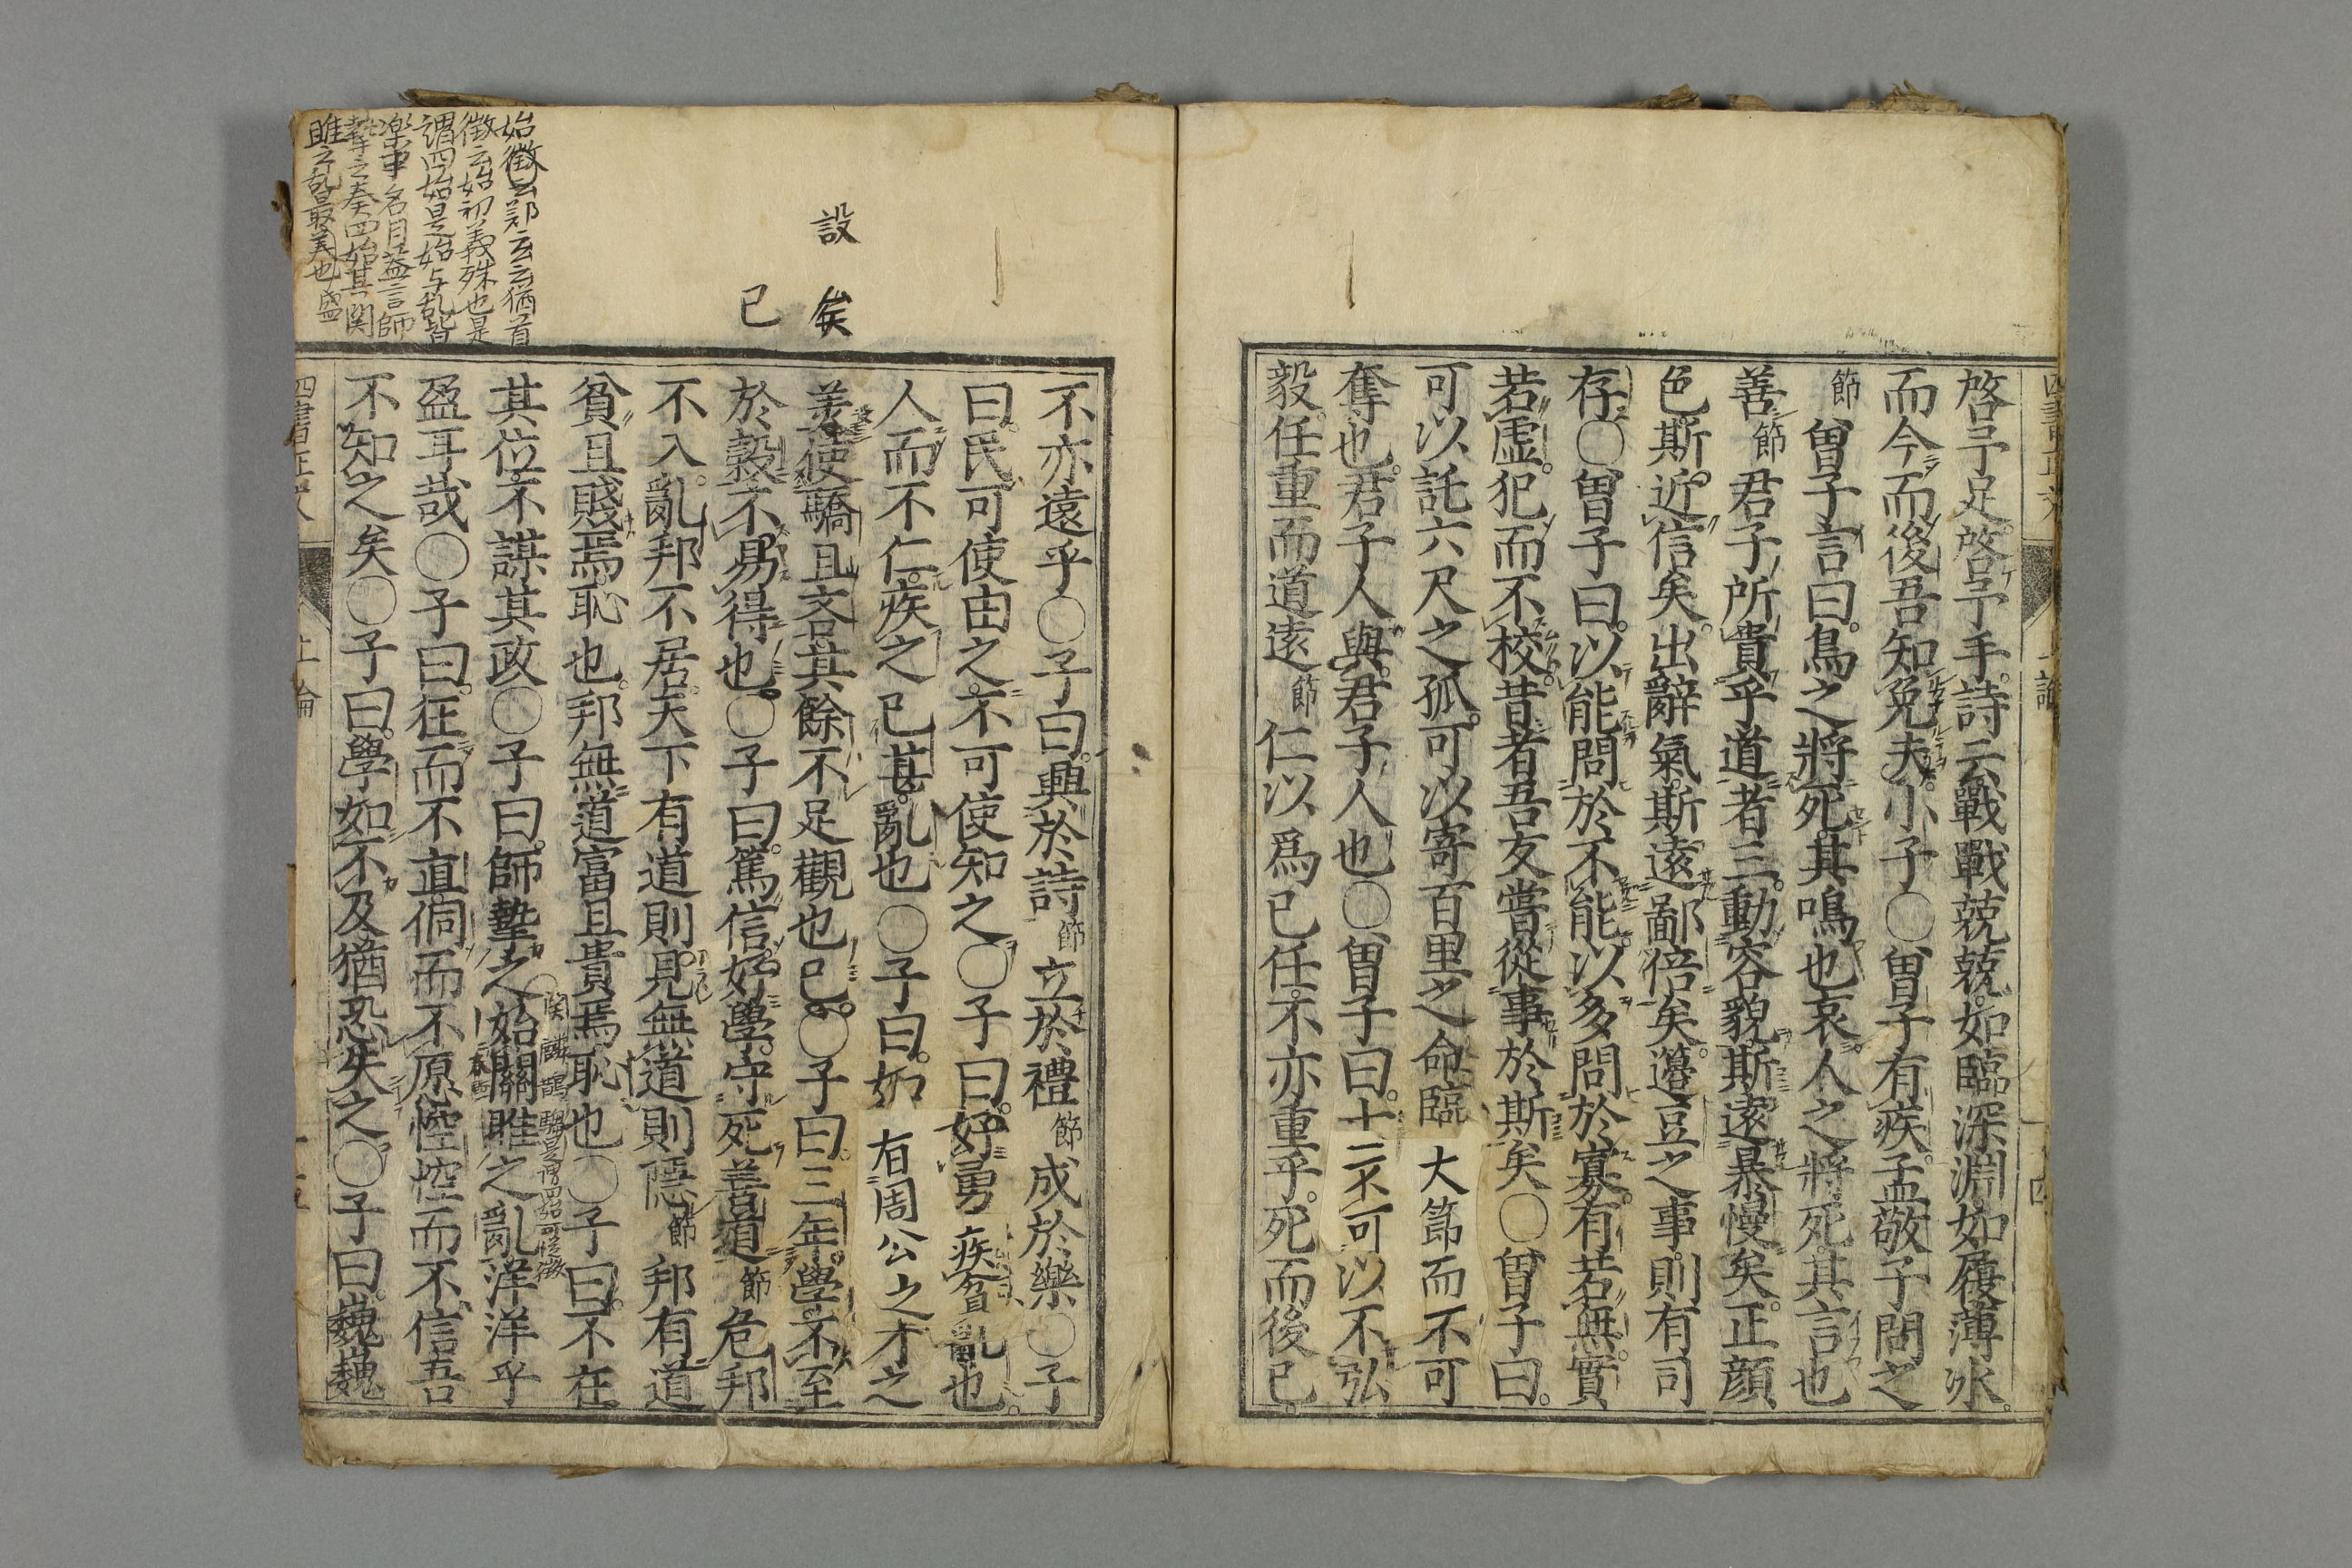 啓予足啓予手詩云戰戰兢兢如臨深淵如履薄冰
而今而後吾知免夫小子○曾子有疾孟敬子問之
節曾子言曰鳥之將死其鳴也哀人之將死其言也
善節君子所貴乎道者三動容貌斯遠暴慢矣正顔
色斯近信矣出辭氣斯遠鄙倍矣籩豆之事則有司
存○曾子曰以能問於不能以多問於寡有若無實
若虛犯而不校昔者吾友嘗從事於斯矣○曾子曰
可以託六尺之孤可以寄百里之命臨大節而不可
奪也君子人與君子人也○曾子曰士不可以不弘
毅任重而道遠節仁以爲己任不亦重乎死而後已
設
矣
已
始徴云鄭云云猶首
徴云始初義殊也是
謂四始是始与乱皆
楽中名目蓋言師
摯之奏四始其関
雎之乱最美也盛
不亦遠乎○子曰興於詩節立於禮節成於樂○子
曰民可使由之不可使知之○子曰好勇疾貧亂也
人而不仁疾之已甚亂也○子曰如有周公之才之
美使驕且吝其餘不足觀也已○子曰三年學不至
於穀不易得也○子曰篤信好學守死善道節危邦
不入亂邦不居天下有道則見無道則隱節邦有道
貧且賤焉恥也邦無道富且貴焉恥也○子曰不在
其位不謀其政○子曰師摯之始關雎之亂洋洋乎
盈耳哉○子曰狂而不直侗而不愿悾悾而不信吾
不知之矣○子曰學如不及猶恐失之○子曰巍巍